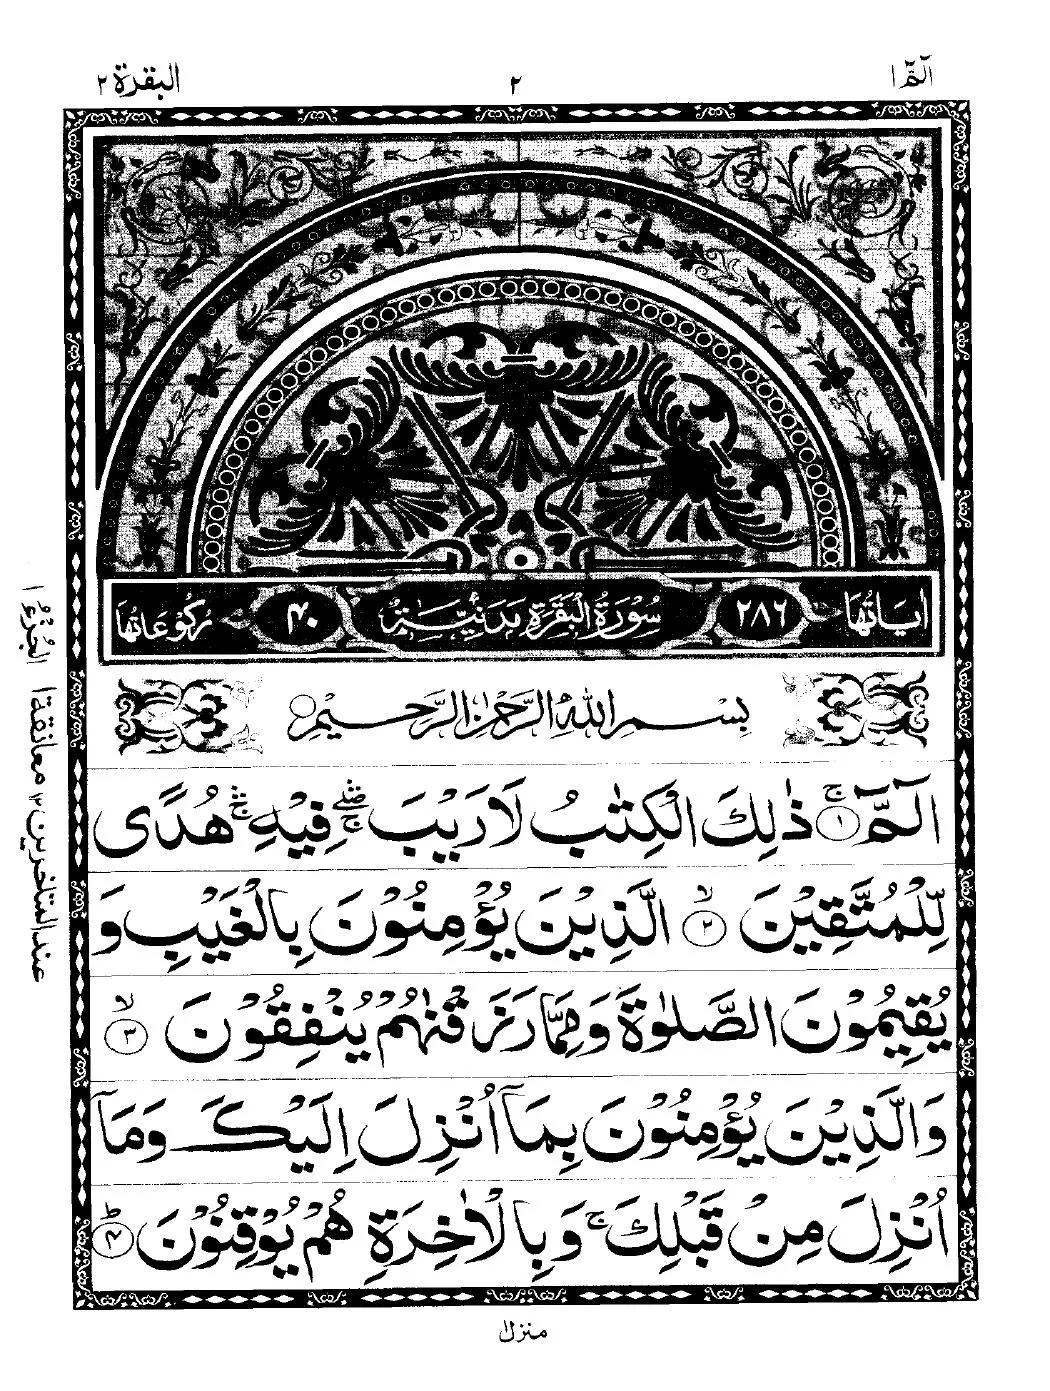 الٓمّٓ ١
٢
البقرة ٢
اٰيَاتُهَا
٢٨٦
سُوْرَةُ الْبَقَرَةِ مَدَنِيَّةٌ
۴۰
رُكُوْعَاتُهَا
بِسْمِ اللّٰهِ الرَّحْمٰنِ الرَّحِيْمِ
الٓمّٓ ۚ‏ ١ ذٰلِكَ الْكِتٰبُ لَا رَيْبَ ۛۖۚ فِيْهِ ۛۚ هُدًى
لِّلْمُتَّقِيْنَ ۙ‏ ٢ الَّذِيْنَ يُؤْمِنُوْنَ بِالْغَيْبِ وَ
يُقِيْمُوْنَ الصَّلٰوةَ وَمِمَّا رَزَقْنٰهُمْ يُنْفِقُوْنَ ۙ‏ ٣
وَالَّذِيْنَ يُؤْمِنُوْنَ بِمَآ اُنْزِلَ اِلَيْكَ وَمَآ
اُنْزِلَ مِنْ قَبْلِكَ ۚ وَبِالْاٰخِرَةِ هُمْ يُوْقِنُوْنَ ؕ‏ ۴
الْجُزْءُ ١
معانقة ١ عند المتاخرين ١٢
منزل